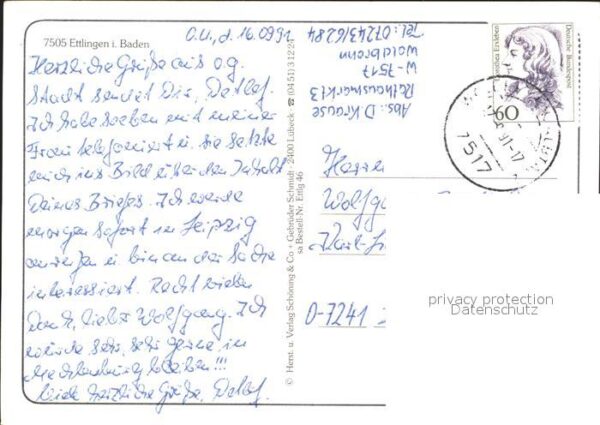 7505 Ettlingen i. Baden
O.U., d. 16.09.91
Herzliche Grüße aus o.g.
Stadt sendet Dir, Detlef.
Ich habe soeben mit meiner
Frau telefoniert u. sie setzte
mich ins Bild über den Inhalt
Deines Briefes. Ich werde
morgen sofort in Leipzig
anrufen u. bin an der Sache
interessiert. Recht vielen
Dank, lieber Wolfgang. Ich
würde sehr, sehr gerne in
Mecklenburg bleiben!!!
Viele herzliche Grüße, Detlef.
© Herst. u. Verlag Schöning & Co + Gebrüder Schmidt · 2400 Lübeck · ☎ (0451) 31 22 2
sa Bestell-Nr. Ettlg 46
Abs.: D. Krause
Rathausmarkt 3
W-7517
Waldbronn
Tel.: 07243/6284
Deutsche Bundespost
Dorothea Erxleben
60
91-17
7517
Herrn
Wolfg
Karl-
O-7241
privacy protection
Datenschutz